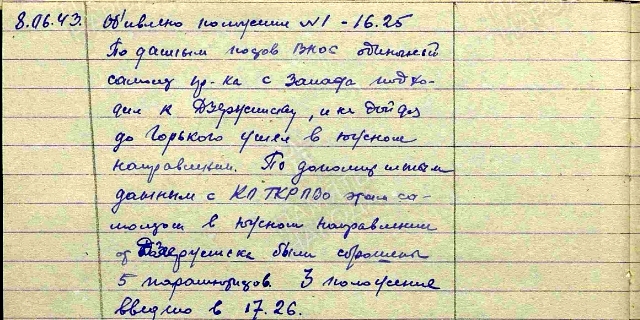 8.06.43. Об'явлено положение №1 - 16.25
По данным постов ВНОС одиночный
самолет пр-ка с Запада подхо-
дил к Дзержинску, и не дойдя
до Горького ушел в южном
направлении. По дополнительным
данным с КП ТКРПВО этим са-
молетом в южном направлении
от Дзержинска были сброшены
5 парашютистов. 3 положение
введено в 17.26.